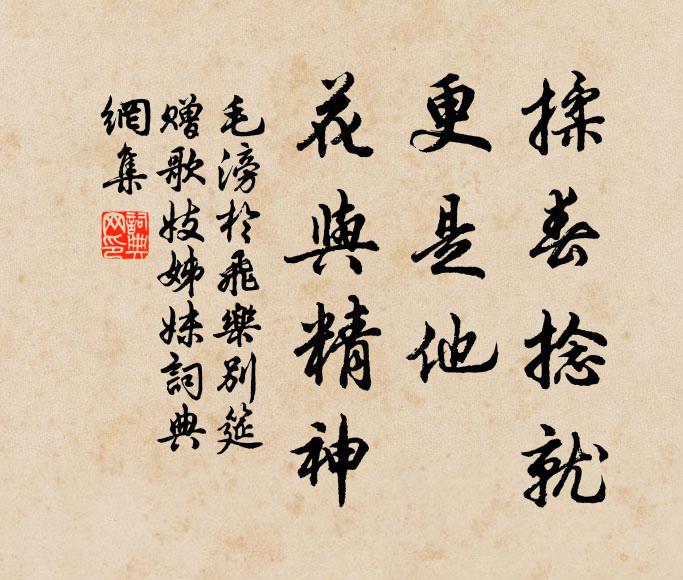 揉春捻就
更是他
花與精神
毛滂於飛樂別筵
贈歌妓姊妹詞典
網集
詞典
网印